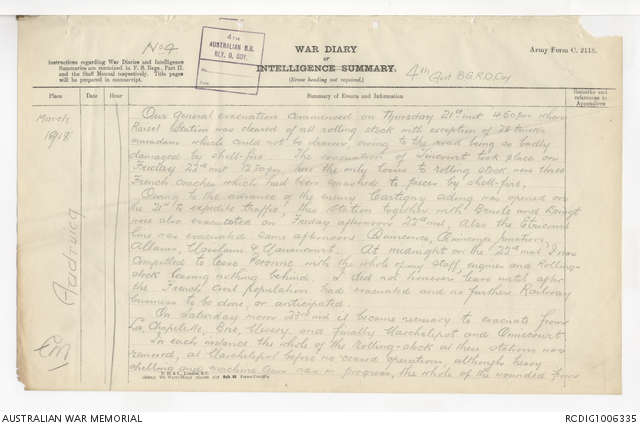 No 4
4TH
AUSTRALIAN B.G.
RLY. O. COY.
WAR DIARY
or
INTELLIGENCE SUMMARY.
(Erase heading not required.)
Army Form C. 2118.
Instructions regarding War Diaries and Intelligence
Summaries are contained in F. S. Regs., Part II.
and the Staff Manual respectively. Title pages
will be prepared in manuscript.
4th Aust B.G.R.O. Coy
Place
Date
Hour
Summary of Events and Information
Remarks and
references to
Appendices
March
1918
Our general evacuations commenced on Thursday 21st inst 4.50 pm when
Roisel Station was cleared of all rolling stock with exception of
which could not be drawn owing to the road being so badly
damaged by shell-fire. The evacuation of Tincourt took place on
Friday 22nd inst 12.30 pm, here the only losses to rolling stock was three
French coaches which had been smashed to pieces by shell-fire.
Owing to the advance of the enemy Cartigny siding was opened on
the 21st to expedite traffic, this station together with
were also evacuated on Friday afternoon 22nd inst, Also the
line was evacuated same afternoon
At midnight on the 22nd inst I was
compelled to leave Peronne with the whole of my staff, engines and Rolling-
stock leaving nothing behind. I did not however leave until after
the French civil population had evacuated and no further Railway
business to be done, or anticipated.
On Saturday morn 23rd inst it became necessary to evacuate from
La Chapelette, Brie, and finally Marchelepot and
In each instance the whole of the Rolling-stock at these stations was
removed, at Marchelepot before we ceased operations although heavy
shelling and machine Guns was in progress, the whole of the wounded from
Audruicq
AUSTRALIAN WAR MEMORIAL
RCDIG1006335